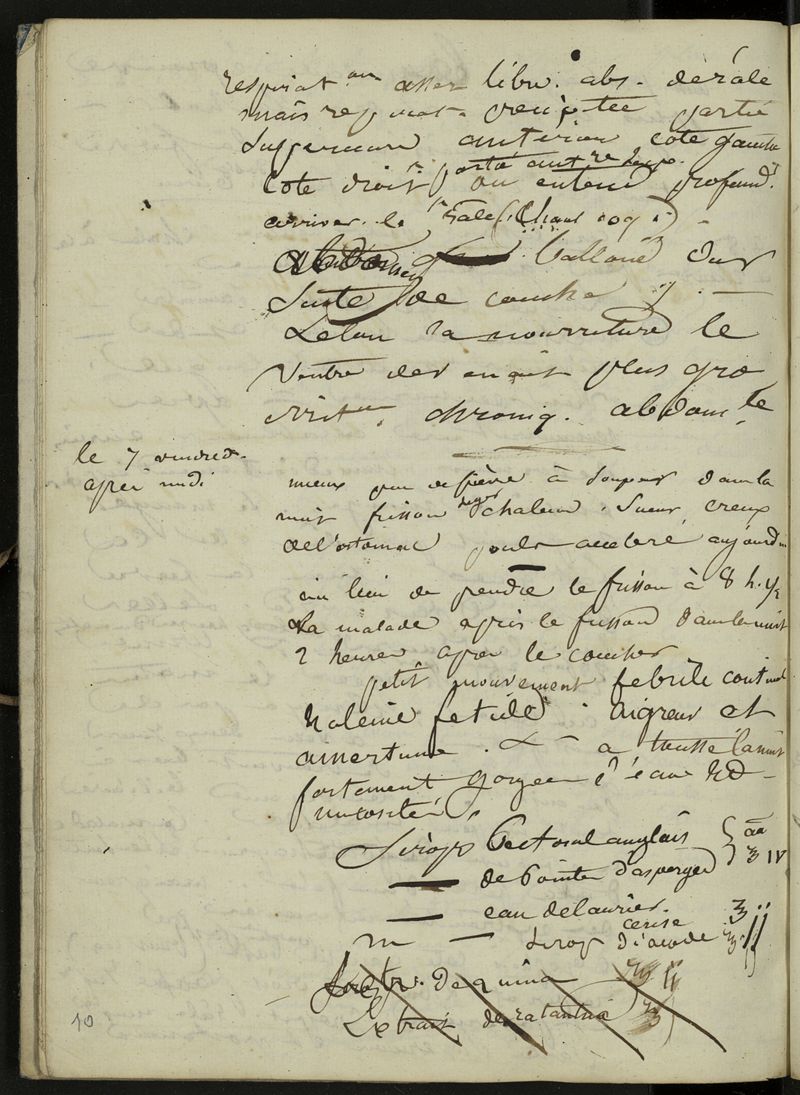 respirat.on assez libre. abs. de râle
mais respirat. partie
superieure anterieur coté gauche
coté droit on entend profond.t
arriver le râle
abdomen ballonné dur
suite de couche
Selon la nourriture le
ventre devenait plus gro
irrit.on chroniq. abdom.le
le 7 vendred.
après midi
mieux pas de fièvre à souper dans la
nuit frisson léger chaleur. Sueur, creux
de l'estomac pouls acceleré aujourd
au lieu de prendre le frisson à 8 h. 1/2
La malade a pris le frisson dans la nuit
2 heures après le coucher
petit mouvement febrile continuel
haleine fetide. aigreur et
amertume. a toussé la nuit
fortement gorgée d'eau
mucosités
Sirop Pectoral anglais āā
— de Pointes d'asperges ʒ IV
— eau de laurier cerise ʒ ii
m — Sirop Diacode ʒ ii
Extr. de quina
Extrait de ratanhia
10